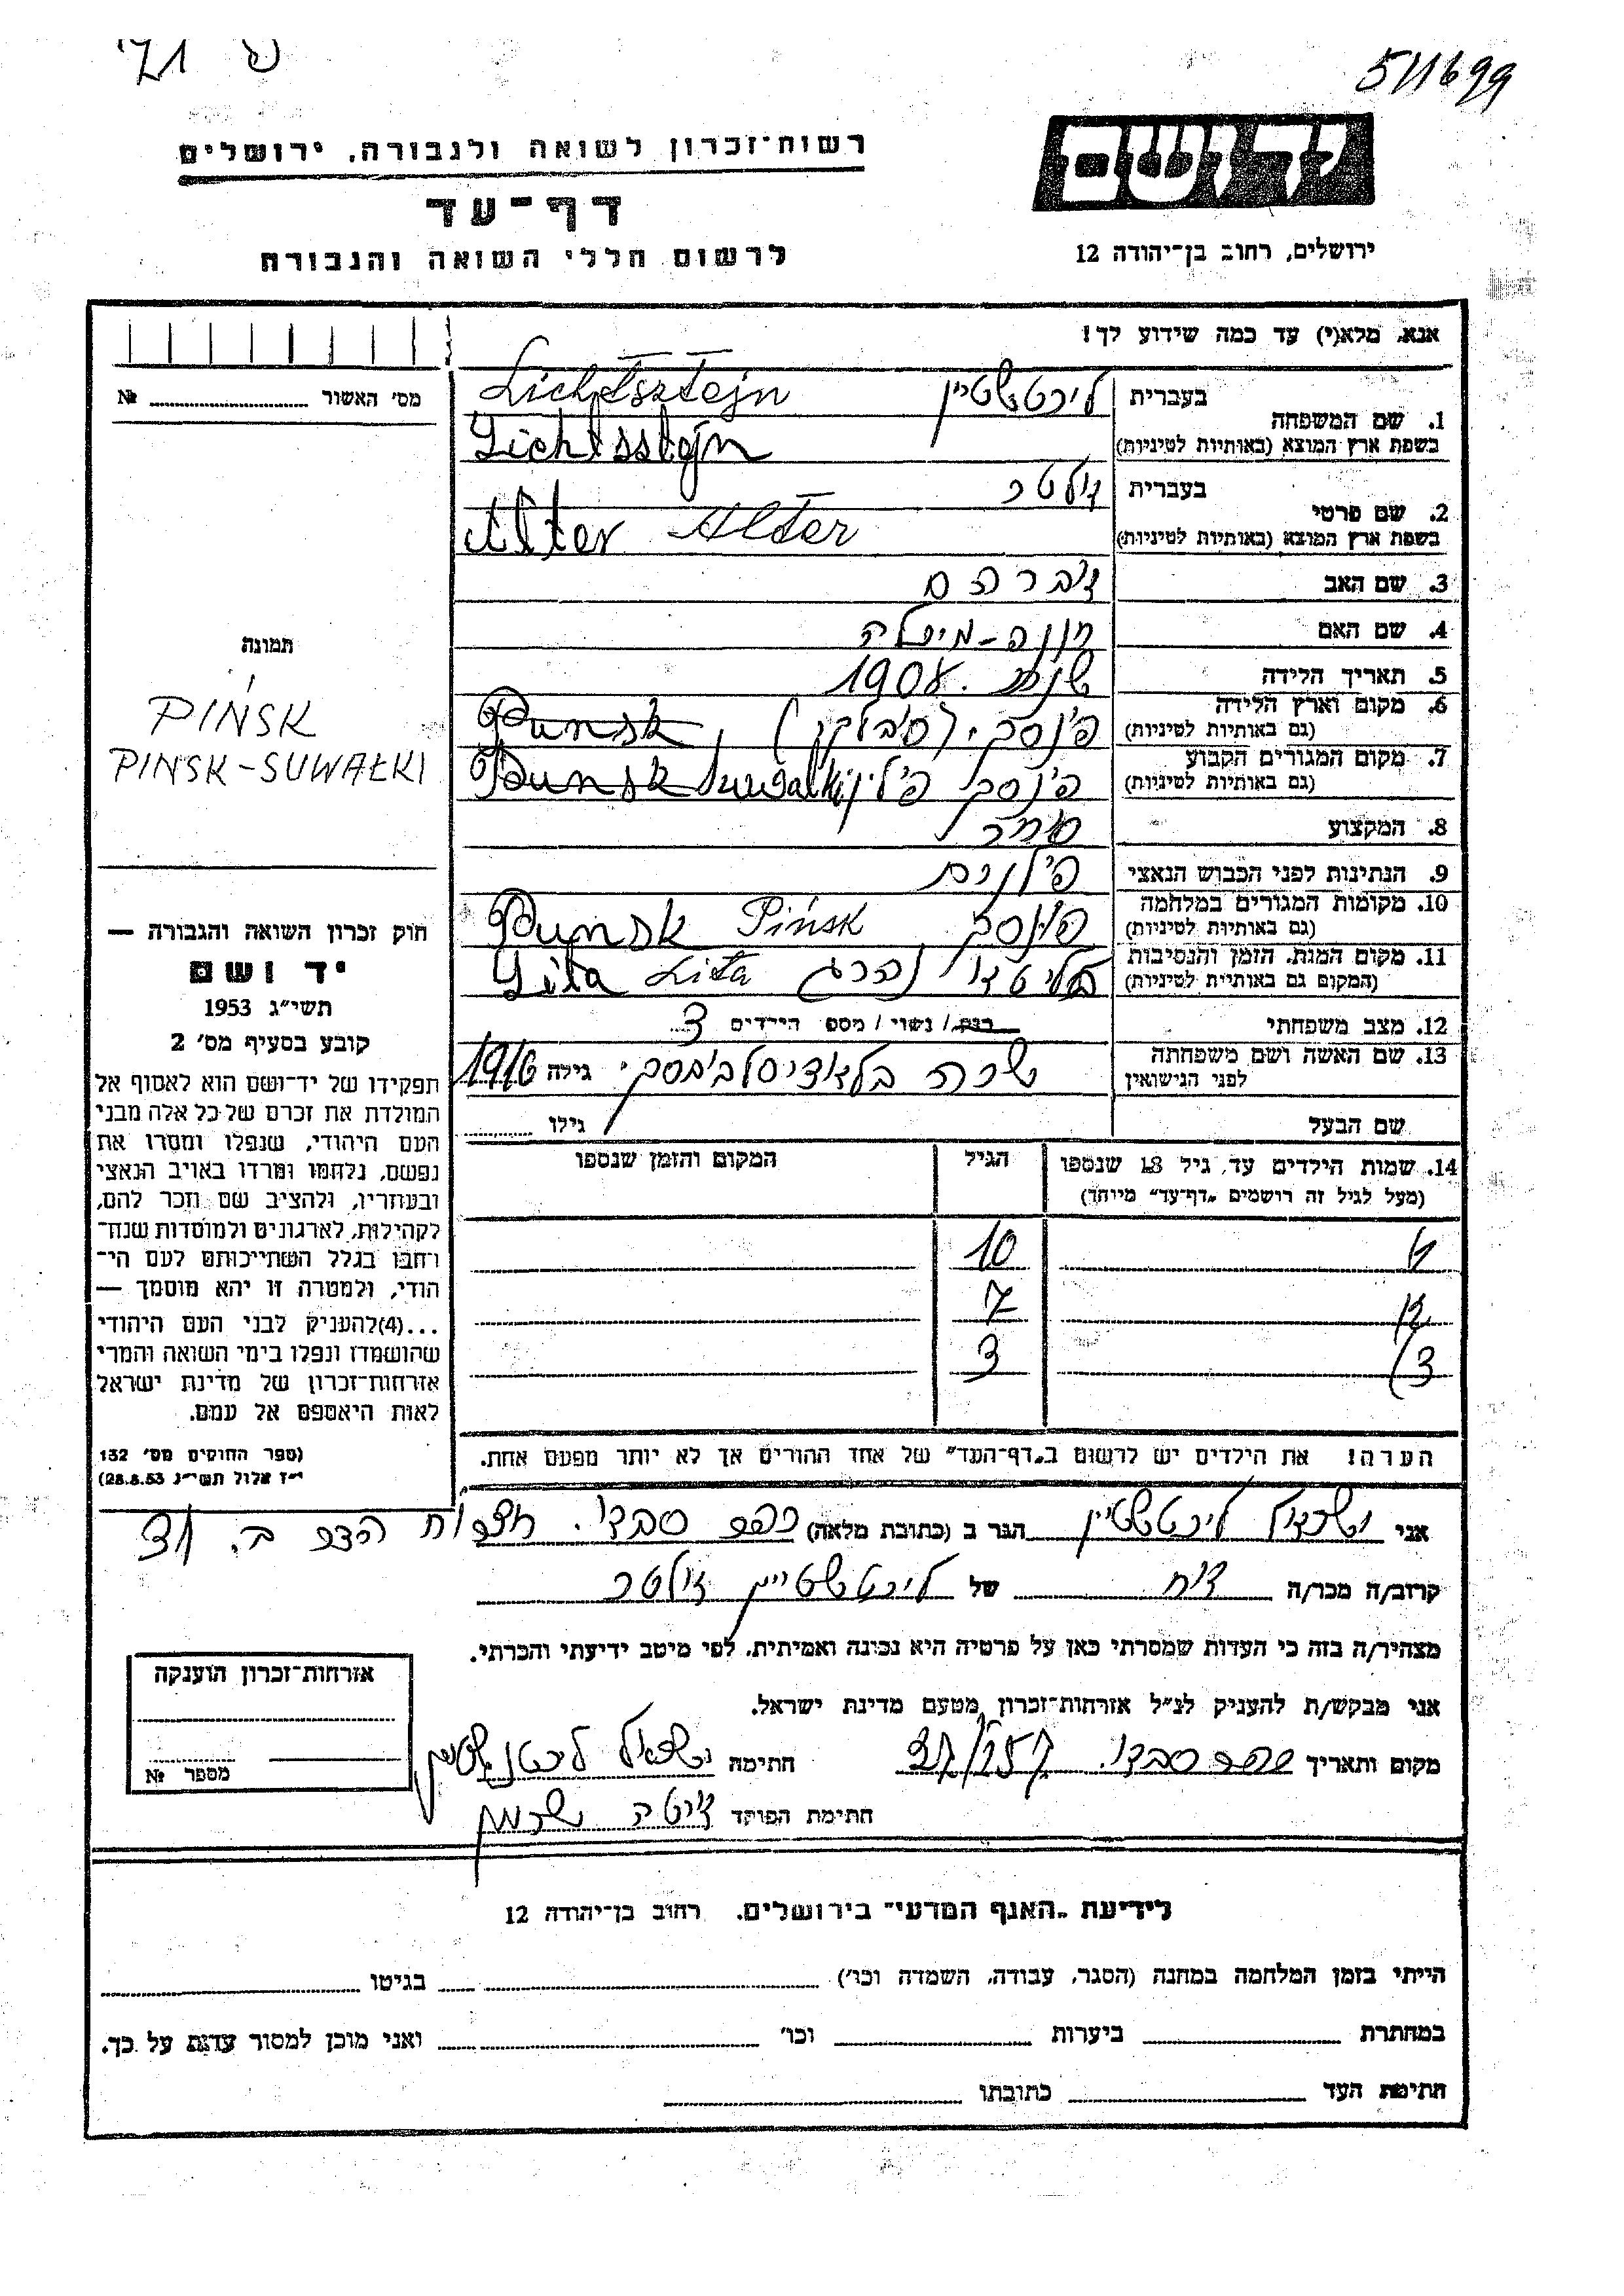 511699
רשות־זכרון לשואה ולגבורה, ירושלים
דף־עד
לרשום חללי השואה והגבורה
יד ושם
ירושלים, רחוב בן־יהודה 12
אנא, מלא(י) עד כמה שידוע לך!
מס׳ האשור № 
1. שם המשפחה בעברית ליכטשטיין Lichtsztejn
בשפת ארץ המוצא (באותיות לטיניות) Lichtsstejn
2. שם פרטי בעברית אלטר
בשפת ארץ המוצא (באותיות לטיניות) Alter Alter
3. שם האב אברהם
4. שם האם חנה-
5. תאריך הלידה שנת 1908
6. מקום וארץ הלידה (גם באותיות לטיניות) פינסק, (סובלקי) Punsk
7. מקום המגורים הקבוע (גם באותיות לטיניות) פינסק פולין Punsk Suwalki
8. המקצוע סוחר
9. הנתינות לפני הכבוש הנאצי פולנית
10. מקומות המגורים במלחמה (גם באותיות לטיניות) פינסק Pińsk Punsk
11. מקום המות, הזמן והנסיבות (המקום גם באותיות לטיניות) בליטא נהרג Lita Lita
12. מצב משפחתי רווק / נשוי / מספר הילדים 3
13. שם האשה ושם משפחתה לפני הנישואין שרה גילה 1916
שם הבעל גילו
תמונה
PIŃSK
PINSK-SUWAŁKI
חוק זכרון השואה והגבורה —
יד ושם
תשי״ג 1953
קובע בסעיף מס׳ 2
תפקידו של יד־ושם הוא לאסוף אל
המולדת את זכרם של כל אלה מבני
העם היהודי, שנפלו ומסרו את
נפשם, נלחמו ומרדו באויב הנאצי
ובעוזריו, ולהציב שם וזכר להם,
לקהילות, לארגונים ולמוסדות שנח־
רבו בגלל השתייכותם לעם הי־
הודי, ולמטרה זו יהא מוסמך —
...(4) להעניק לבני העם היהודי
שהושמדו ונפלו בימי השואה והמרי
אזרחות־זכרון של מדינת ישראל
לאות היאספם אל עמם.
(ספר החוקים מס׳ 132
י״ז אלול תשי״ג 28.8.53)
14. שמות הילדים עד גיל 18 שנספו הגיל המקום והזמן שנספו
(מעל לגיל זה רושמים „דף־עד״ מיוחד)
1) 10
2) 7
3) 3
הערה! את הילדים יש לרשום ב„דף־העד״ של אחד ההורים אך לא יותר מפעם אחת.
אני ישראל ליכטשטיין הגר ב (כתובת מלאה) כפר סבא,
קרוב/ה מכר/ה אח של ליכטשטיין אלטר
מצהיר/ה בזה כי העדות שמסרתי כאן על פרטיה היא נכונה ואמיתית, לפי מיטב ידיעתי והכרתי.
אני מבקש/ת להעניק לנ״ל אזרחות־זכרון מטעם מדינת ישראל.
מקום ותאריך כפר סבא, חתימה ישראל ליכטנשטיין
חתימת הפוקד
אזרחות־זכרון הוענקה
מספר №
לידיעת „האגף המדעי״ בירושלים, רחוב בן־יהודה 12
הייתי בזמן המלחמה במחנה (הסגר, עבודה, השמדה וכו׳) בגיטו
במחתרת ביערות וכו׳ ואני מוכן למסור עדות על כך.
חתימת העד כתובתו